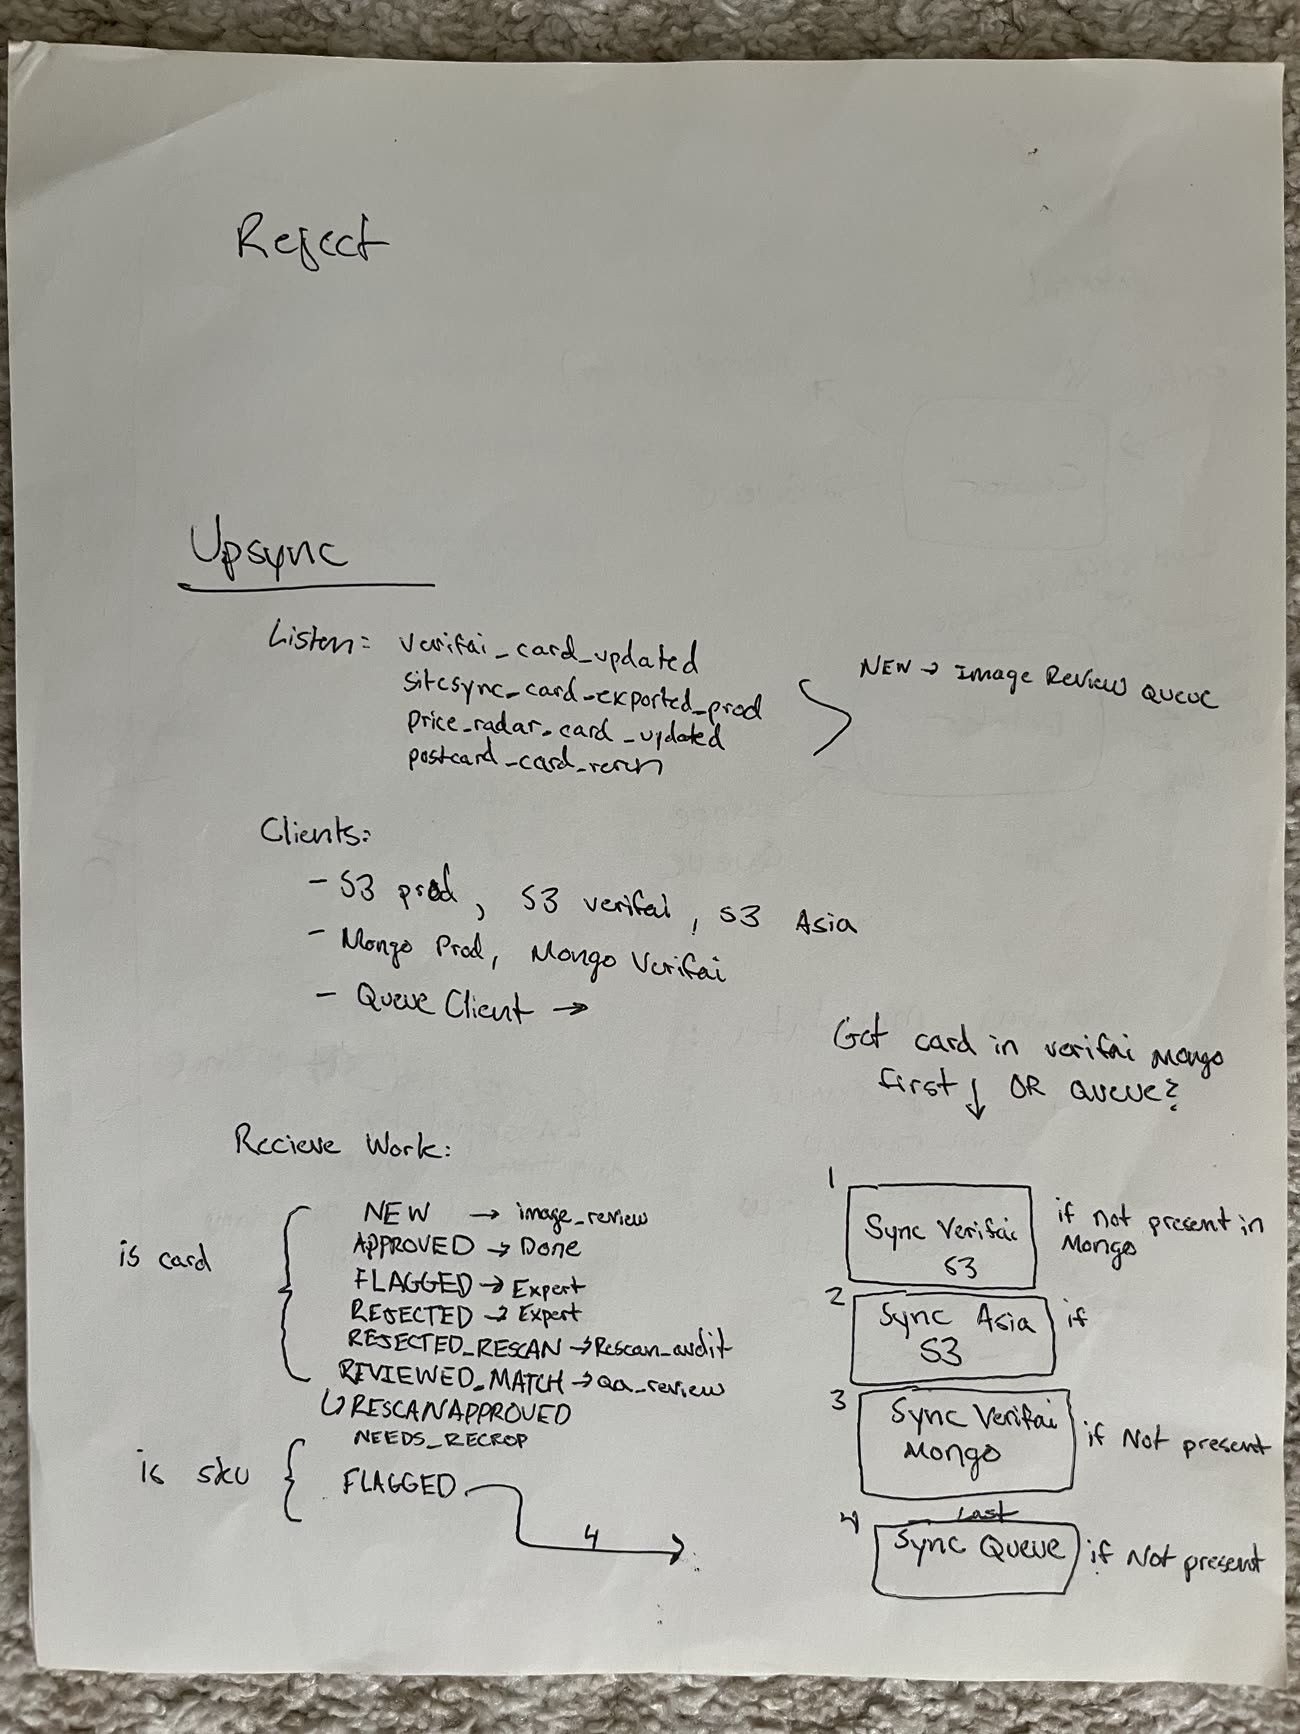 Reject
Upsync
Listen: verifai_card_updated
sitesync_card_exported_prod
price_radar_card_updated
postcard_card_rerun
NEW → Image Review Queue
Clients:
- S3 prod, S3 verifai, S3 Asia
- Mongo Prod, Mongo Verifai
- Queue Client →
Get card in verifai mongo
first ↓ OR Queue?
Recieve Work:
is card
NEW → image_review
APPROVED → Done
FLAGGED → Expert
REJECTED → Expert
REJECTED_RESCAN → Rescan_audit
REVIEWED_MATCH → qa_review
↳ RESCANAPPROVED
NEEDS_RECROP
is sku
FLAGGED
4
1
Sync Verifai
S3
if not present in
Mongo
2
Sync Asia
S3
if
3
Sync Verifai
Mongo
if Not present
4
Last
Sync Queue
if Not present